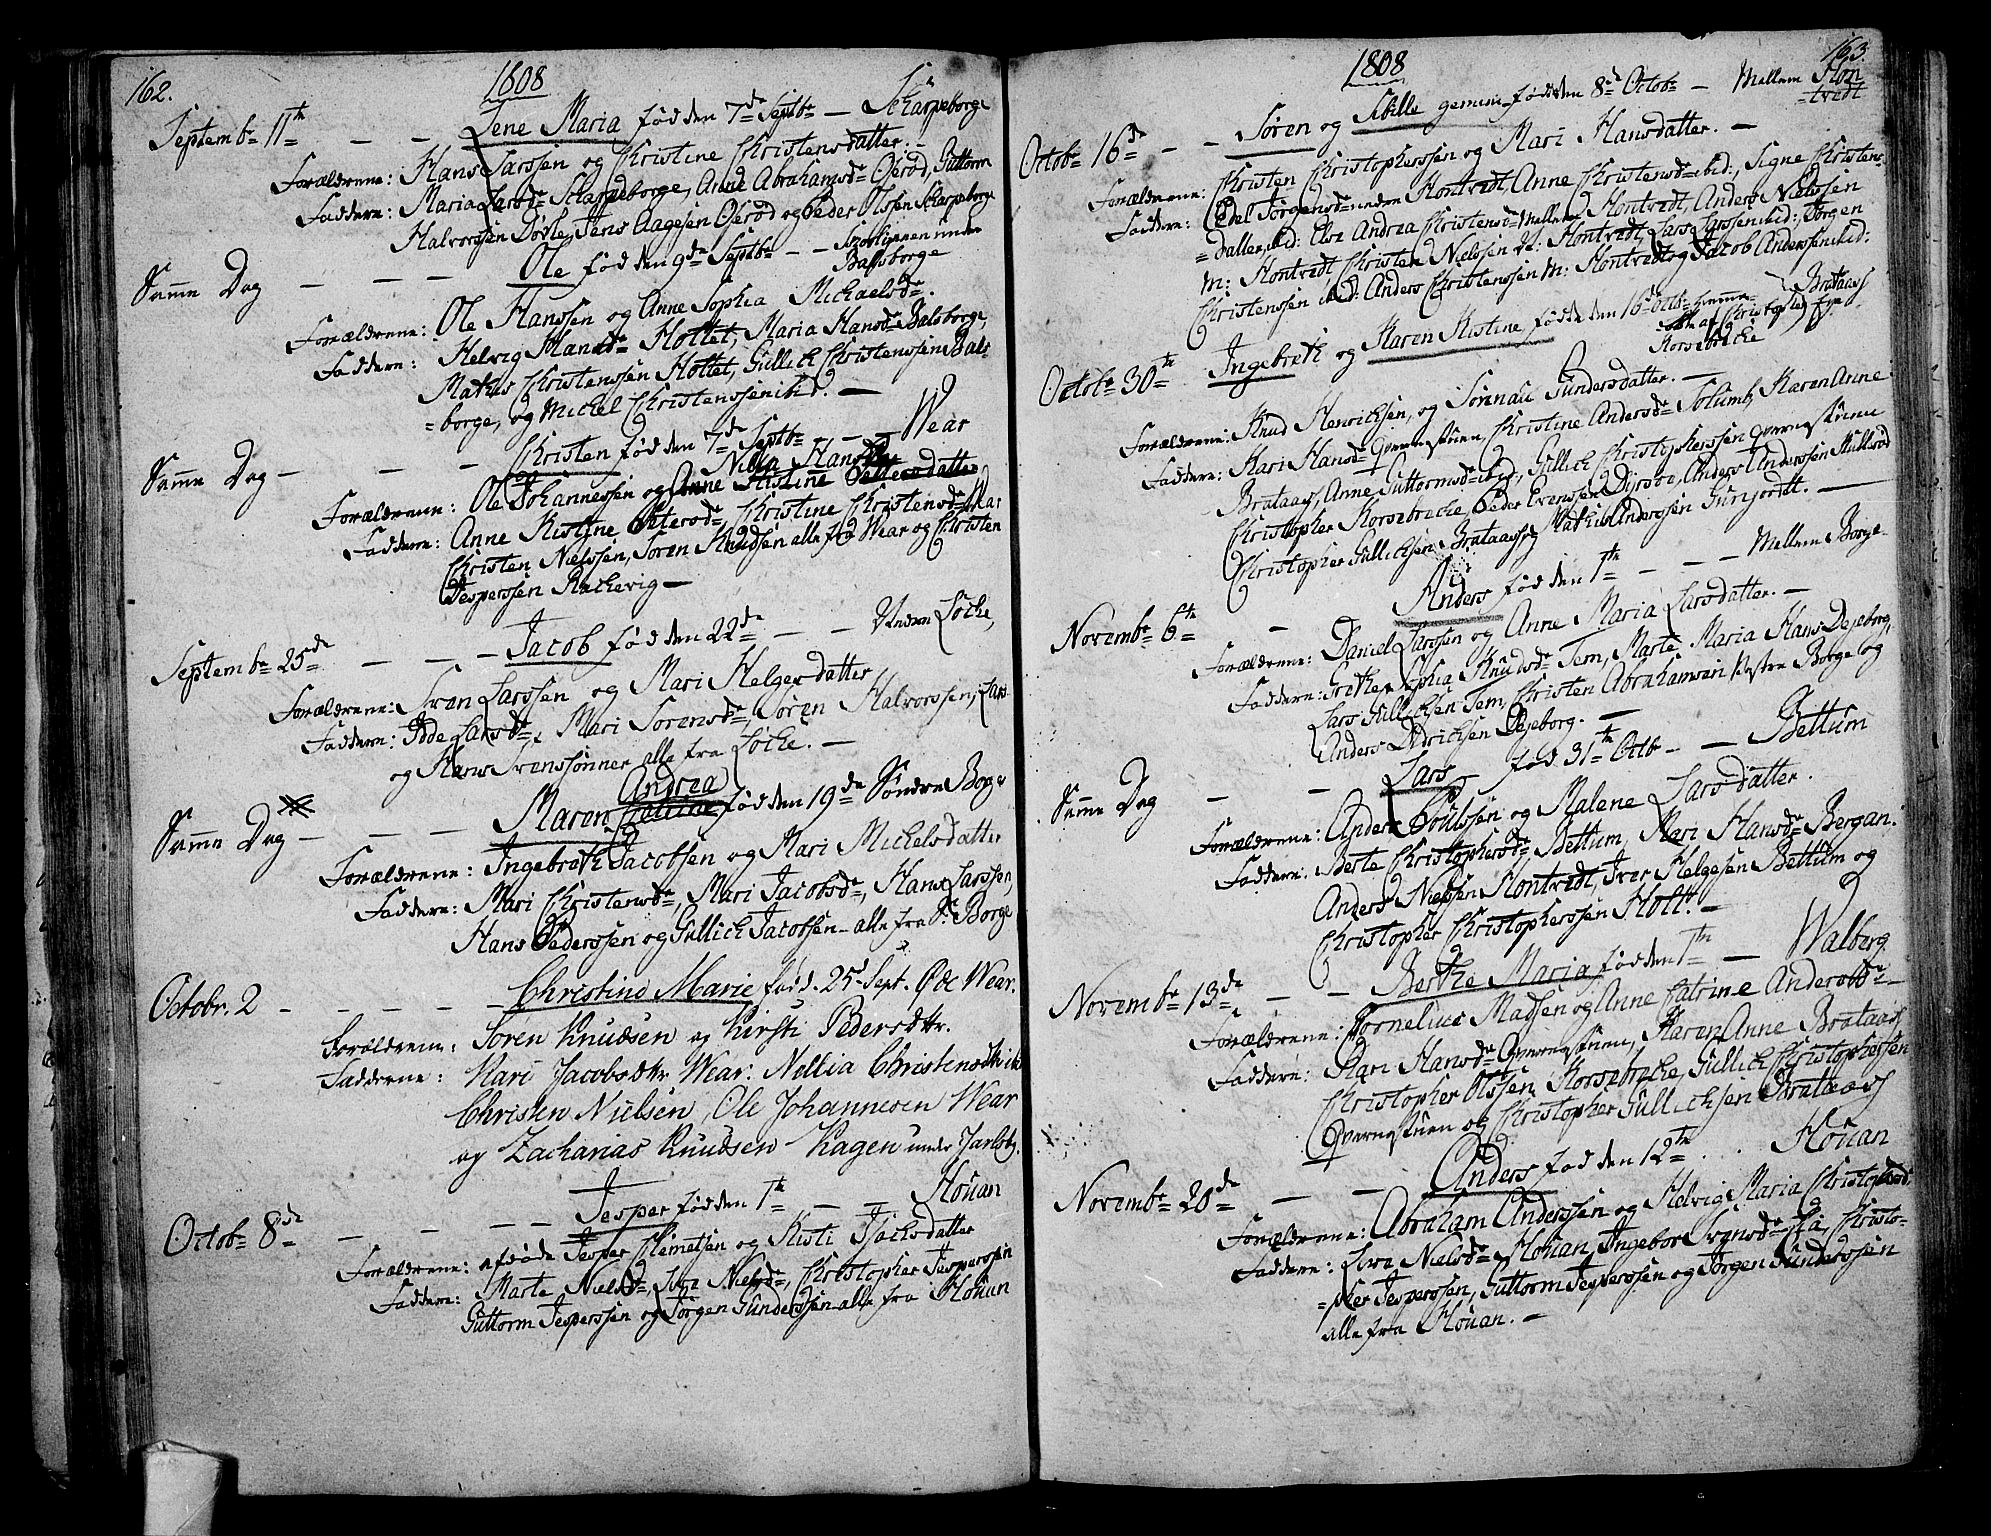 162.
1808
Septembr 11te — — Lene Maria fød den 7de Septbr — Scharpeborge
Forældrene: Hans Larssen og Christine Christensdatter. —
Faddere: Maria Larsd. Skarpeborge, Anne Abrahamsd. Oserød, Guttorm
Halvorssen Døvle, Jens Aagesen Oserød og Peder Olssen Scharpeborge
Samme Dag — — — Ole fød den 9de Septbr — — under
Balsborge
Forældrene: Ole Hanssen og Anne Sophia Michaelsd.
Faddere: Helvig Hansd. Holtet, Maria Hansd. Balsborge,
Mathis Christenssen Holtet, Gullich Christenssen Bals-
=borge, og Michel Christenssen ibid. —
Samme Dag — — — Christen fød den 7de Septbr — — Wear
Nillia Hansdtr
Forældrene: Ole Johannessen og Anne Kistine Pettersdatter
Faddere: Anne Kistine Petersd., Christine Christensd. Wear
Christen Nielssen, Søren Knudsen alle fra Wear og Christen
Jesperssen Rachevig —
Septembr 25de — — — Jacob fød den 22de — — Neden Løche,
Forældrene: Sven Larssen og Mari Helgesdatter
Faddere: Larsd., Mari Sørensd., Søren Halvorssen, Lars
og Hans Svenssønner alle fra Løche. —
Andrea
Samme Dag — — — Maren fød den 19de Søndre Borge
Forældrene: Ingebreth Jacobsen og Mari Michelsdatter
Faddere: Mari Christensd., Mari Jacobsd., Hans Larssen,
Hans Pederssen og Gullich Jacobsen — alle fra S: Borge
Octobr. 2 — — — — Christine Marie fød d. 25d Sept. Øde Wear.
Forældrene: Søren Knudsen og Kirsti Pedersdtr.
Fadderne: Mari Jacobsdtr Wear. Nillia Christensdtr ibid
Christen Nielsen, Ole Johannesen Wear
og Zacharias Knudsen Hagen under Jarlsbg.
Octobr 8de — — — — Jesper fød den 1te — — Houan
Forældrene: afdøde Jesper Clemetsen og Kisti Isachsdatter
Faddere: Marte Nielsd., Siri Nielsd., Christopher Jesperssen
Guttorm Jesperssen og Jørgen Gunderssen alle fra Houan
163.
1808
Octobr 16de — — Søren og Sibille gemini fødde den 8de Octobr — Mellem Hon
=tvedt
Forældrene: Christen Christopherssen og Mari Hansdatter. —
Faddere: Edel Jørgensd. neden Hontvedt, Anne Christensd. ibid:, Signe Christens-
=datter, ibid: Else Andrea Christensd. Mellem Hontvedt, Anders Nielssen
M: Hontvedt Christen Nielssen N: Hontvedt, Lars Larssen ibid:, Jørgen
Christenssen ibid: Anders Christenssen M: Hontvedt og Jacob Anderssen ibid:
Octobr 30te Ingebreth og Karen Kistine fødde den 16de Octbr Brataas
Korsebreche
Forældrene: Knud Henrichsen, og Sørenau Gundersdatter. —
Faddere: Kari Hansd. Qvernestuen, Christine Andersd. Solum, Karen Anne
Brataas, Anne Guttormsd. ibid, Gullich Christopherssen Qvernestuen
Christopher Korsebreche, Peder Evenssen Dyrsøe, Anders Anderssen Stulsrød
Christopher Gullichsen Brataas og Mathis Anderssen Gunfordt. —
Novembr 6te — Anders fød den 1te — — — Mellem Borge.
Forældrene: Daniel Larssen og Anne Maria Larsdatter. —
Faddere: Grethe Sophia Knudsd. Tem, Marte Maria Hansd. Dejeborg,
Lars Gullichsen Tem, Christen Abrahamsen Vestre Borge og
Anders Didrichsen Dejeborg. —
Samme Dag — — Lars fød 31te Octbr — — Bettum
Forældrene: Anders Poulssen og Malene Larsdatter.
Faddere: Berte Christophersd. Bettum, Mari Hansd. Bergan.
Anders Nielssen Hontvedt, Iver Helgesen Bettum og
Christopher Christopherssen Holt. —
Novembr 13de — — Berthe Maria fød den 1te — Walberg
Forældrene: Cornelius Madsen og Anne Catrine Andersd. —
Faddere: Mari Hansd. Qvernestuen, Karen Anne Brataas,
Christopher Olssen Korsebreche, Gullich Christopherssen
Qvernestuen og Christopher Gullichsen Brataas
Novembr 20de — — Anders fød den 12te . . . Houan
Forældrene: Abraham Anderssen og Helvig Maria Christophersd.
Faddere: Siri Nielsd. Houan, Ingebor Svensd. Christo-
=pher Jesperssen, Guttorm Jesperssen og Jørgen Gunderssen
alle fra Houan. —